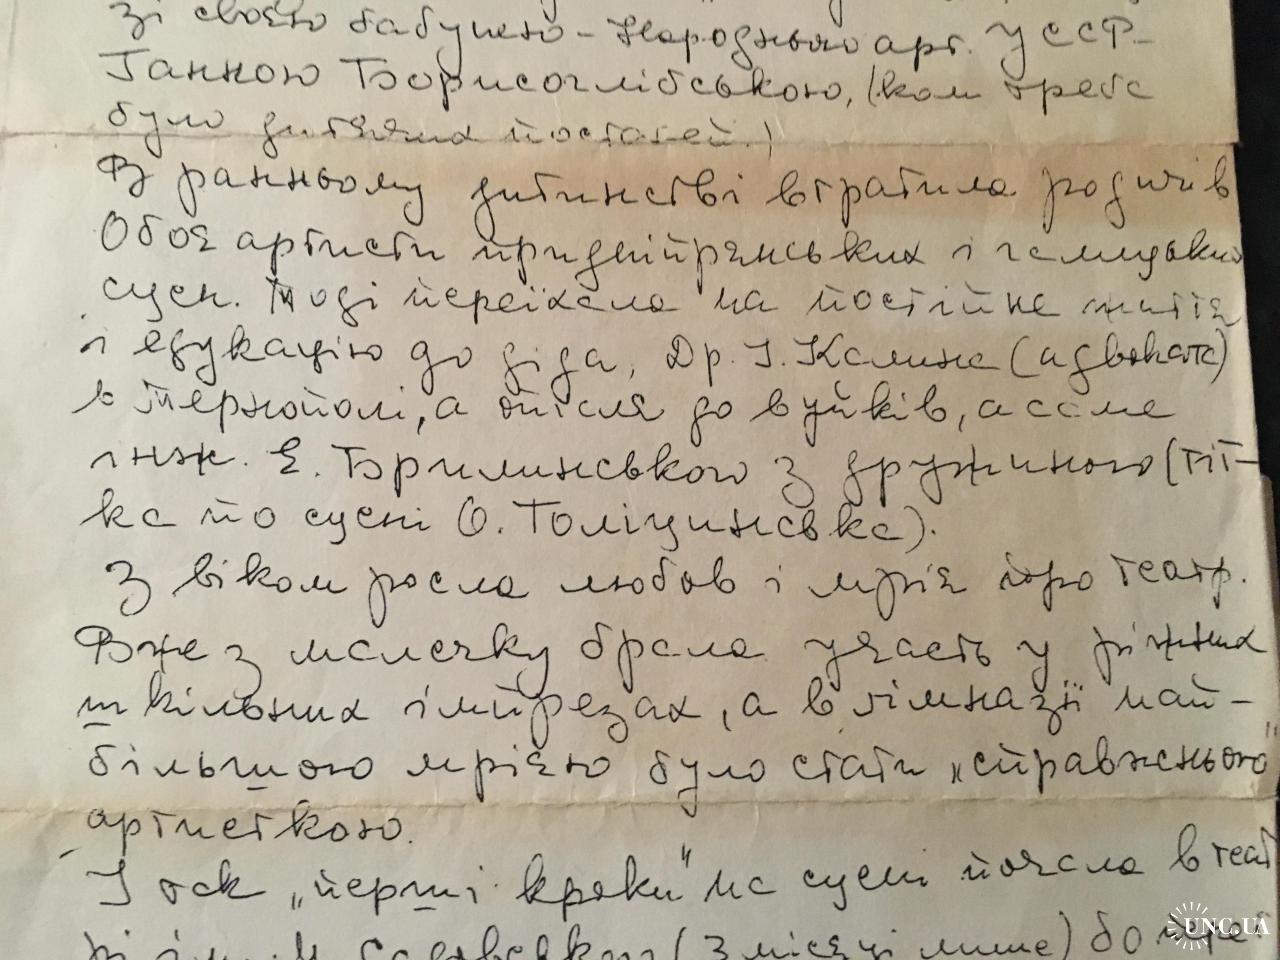 зі своєю бабунею – Народньою арт. УССР–
Ганною Борисоглібською, (коли треба
було дитячих постатей.)
В ранньому дитинстві втратила родичів
Обоє артисти придніпрянських і галицьких
сцен. Тоді переїхала на постійне життя
і едукацію до діда, Др. І. Калина (адвоката)
в Тернополі, а опісля до вуйків, а саме
інж. Є. Брилинського з дружиною (тіт-
ка по сцені О. Голіцинська).
З віком росла любов і мрія про театр.
Вже з малечку брала участь у ріжних
шкільних імпрезах, а в гімназії най-
більшою мрією було стати „справжньою"
артисткою.
І так „перші кроки" на сцені почала в теат
(3 місяці лише) бо
UNC.UA